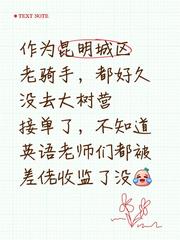 TEXT NOTE
作为昆明城区
老骑手，都好久
没去大树营
接单了，不知道
英语老师们都被
差佬收监了没